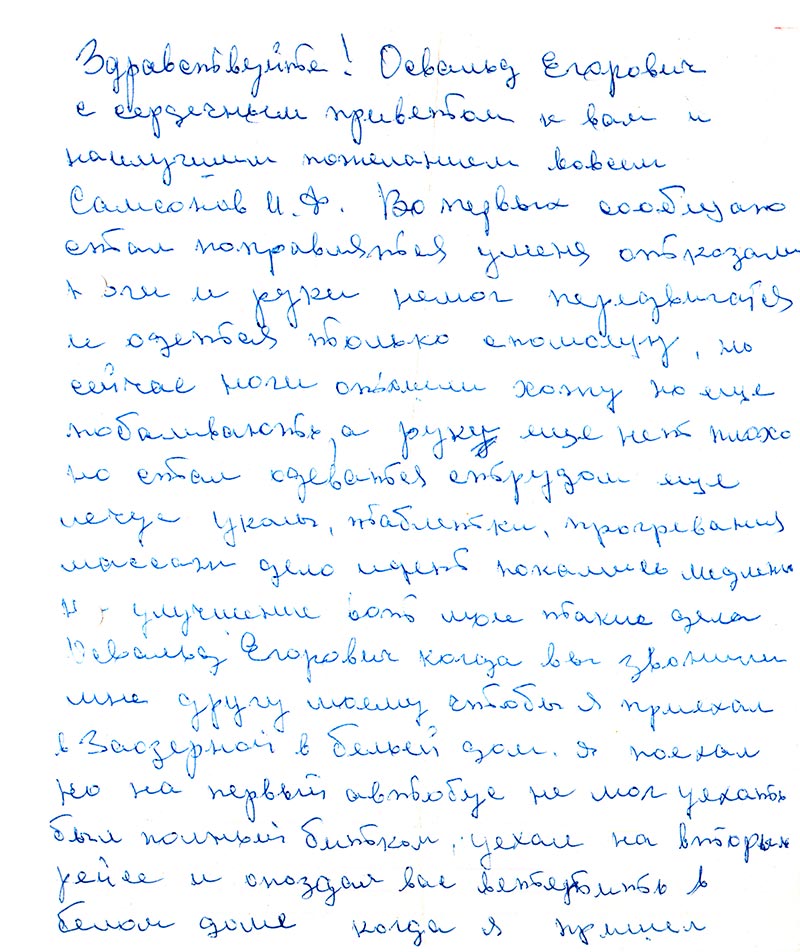 Здравствуйте! Освальд Егорович
с сердечным приветом к вам и
наилучшим пожеланием вовсем
Самсонов И.Ф. Во первых сообщаю
стал поправляться уменя отказали
ноги и руки немог передвигатся
и одется только спомощу, но
сейчас ноги отошли хожу но еще
побаливають, а руку еще нет плохо
но стал одеватся струдом еще
лечус уколы, таблетки, прогревания
массаж дело идет покамись медлены
улучшение вот мое такие дела
Освальд Егорович когда вы звонили
мне другу моему чтобы я приехал
в Заозерной в белый дом. я поехал
но на первый автобус не мог уехать
был полный битком, уехал на вторым
рейсе и опоздал вас встетить в
белом доме когда я пришел